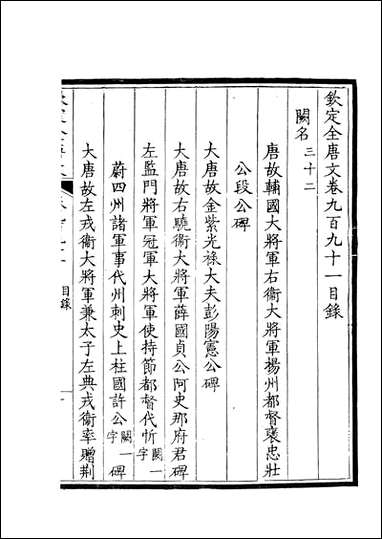 欽定全唐文卷九百九十一目錄
闕名三十二
唐故輔國大將軍右衛大將軍楊州都督襃忠壯
公段公碑
大唐故金紫光祿大夫彭陽憲公碑
大唐故右驍衛大將軍薛國貞公阿史那府君碑
左監門將軍冠軍大將軍使持節都督代忻闕一字
蔚四州諸軍事代州刺史上柱國許公闕一字碑
大唐故左戎衛大將軍兼太子左典戎衛率贈荆
目錄
一